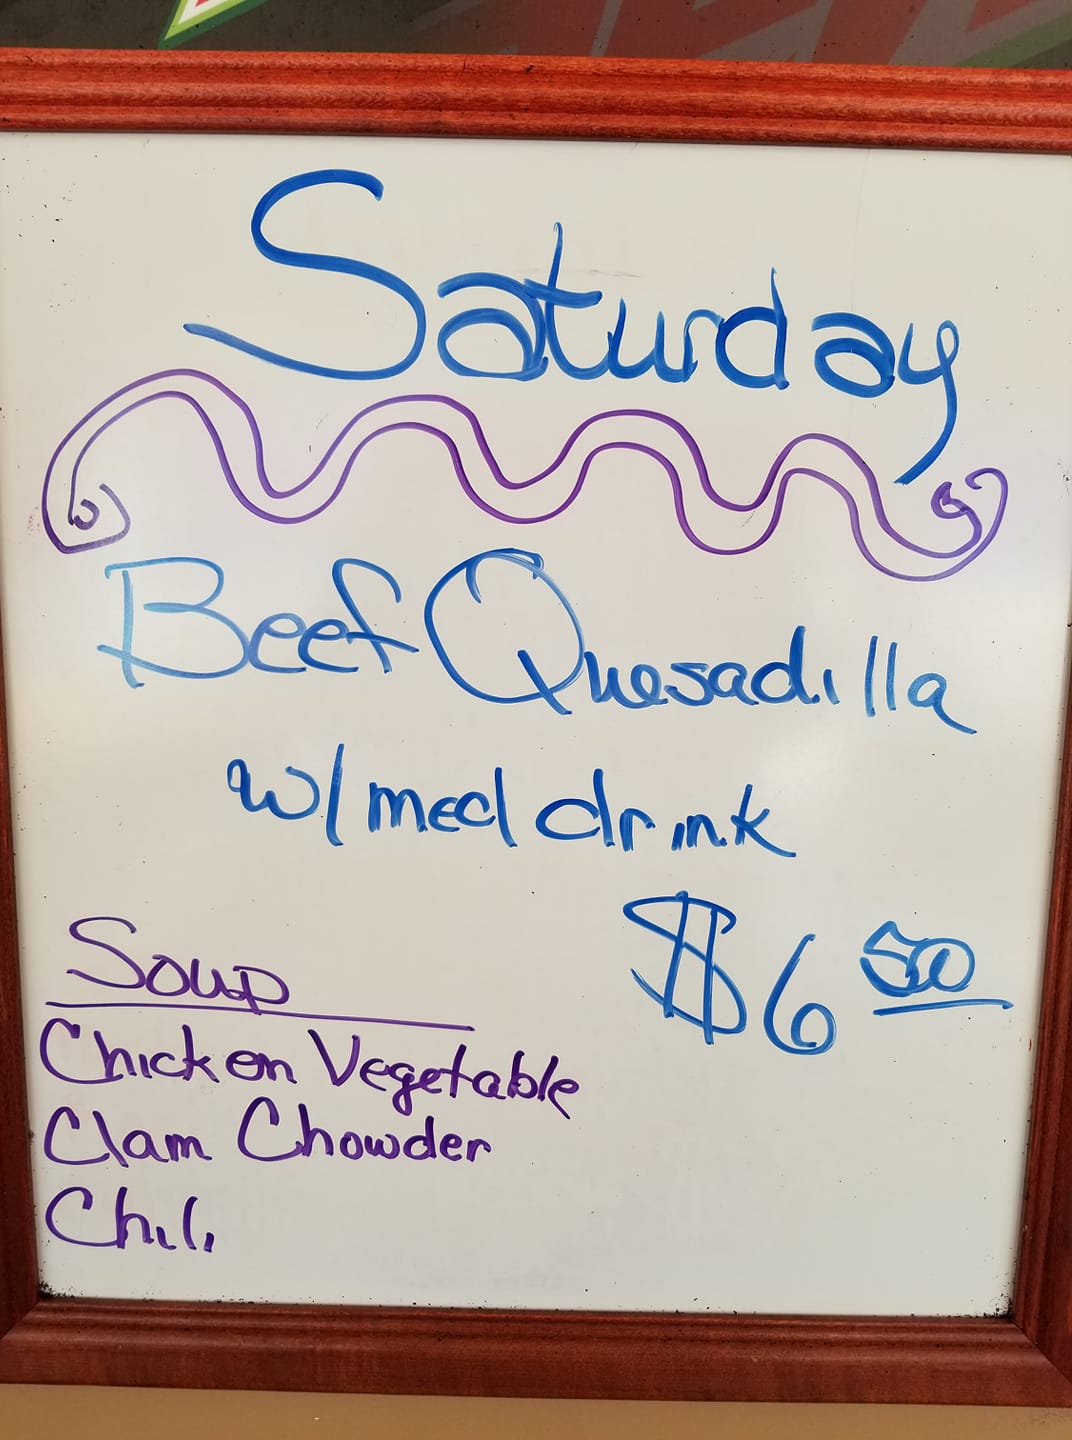 Saturday
Beef Quesadilla
w/ med drink
$6 50
Soup
Chicken Vegetable
Clam Chowder
Chili